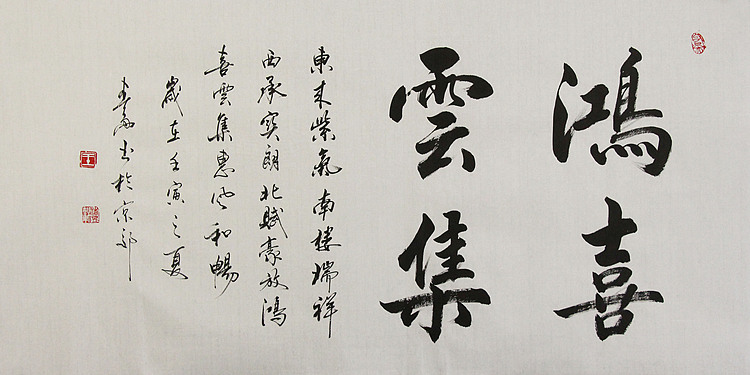 鴻喜
雲集
東来紫氣南樓瑞祥
西承寰朗北賦豪放鴻
喜雲集惠風和暢
歲在壬寅之夏
書於京郊